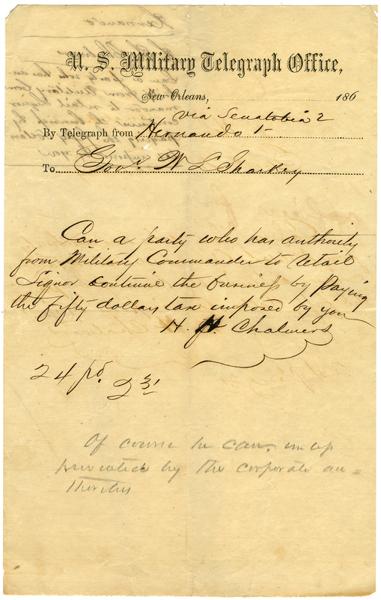 U. S. Military Telegraph Office,
New Orleans, 186
via Senatobia 2
By Telegraph from Hernando 1
To Gov. W L Sharkey
Can a party who has authority
from Military Commander to retail
Liquor continue the business by paying
the fifty dollar tax imposed by you
H. H. Chalmers
24 pd. 231
Of course he can, unless
prevented by the corporate au-
thorities
Hernando